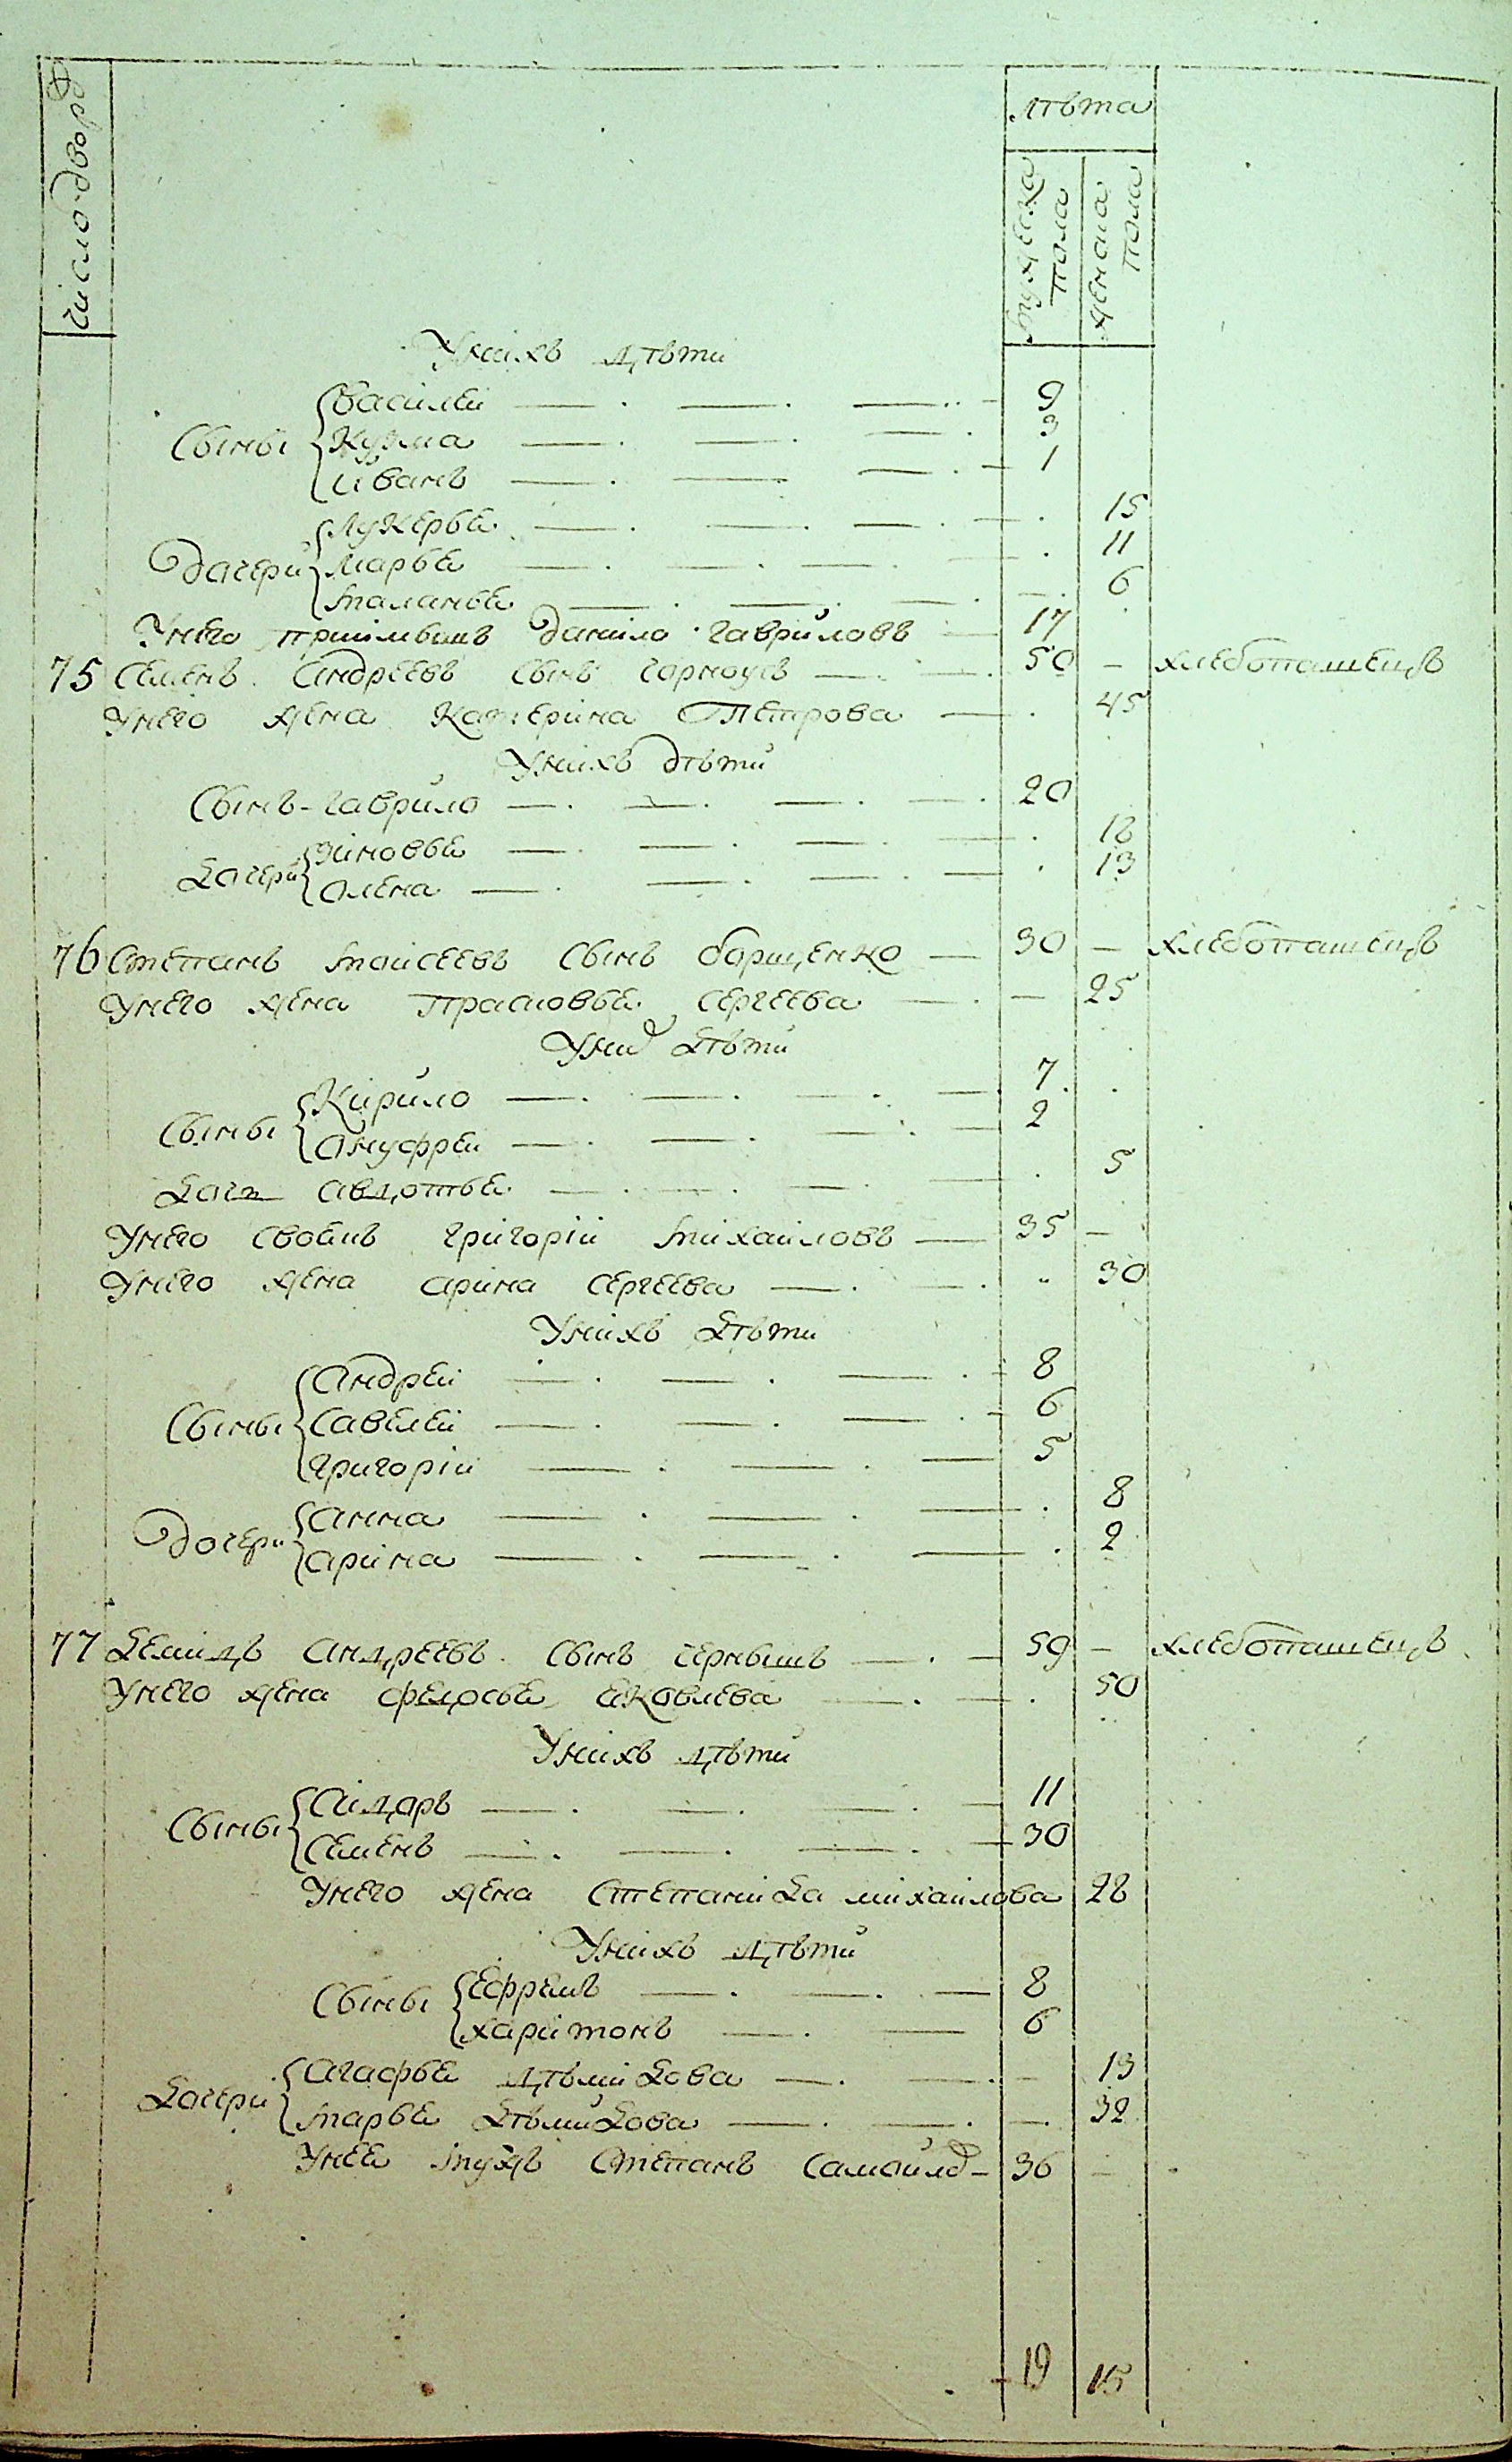 число дворѡ
лѣта
мужеска пола
женска пола
У нихъ дѣти
Василеи 9
Сыны Кузма 3
Иванъ 1
Лукерье 15
дачери Марье 11
Маланье 6
У него приимышъ данило гавриловъ 17
75 Семенъ Андреевъ сынъ 50 - хлебопашецъ
У него жена Катерина Петрова 45
У нихъ дѣти
Сынъ - гаврило 20
Дочери Зиновье 18
Олена 13
76 Степанъ Моисеевъ сынъ борщенко 30 - хлебопашецъ
У него жена Прасковье Сергеева - 25
У них дѣти
Сыны Кирило 7
Онуфреи 2
Дочь Авдотье 5
У него своякъ григоріи Михаиловъ 35 -
У него жена арина Сергеева 30
У нихъ дѣти
Андреи 8
Сыны Савелеи 6
григоріи 5
дочери Анна 8
арина 2
77 Демидъ Андреевъ сынъ чернышъ 59 - хлебопашецъ
У него жена федосье Яковлева 50
У нихъ дѣти
Сыны Сидаръ 11
Семенъ 30
У него жена Степанида михаилова 28
У нихъ дѣти
Сыны Ефремъ 8
харитонъ 6
Дочери Агафье дѣмидова - 13
Марье дѣмидова - 32
У нее мужъ Степанъ Самойлов 36 -
19 15